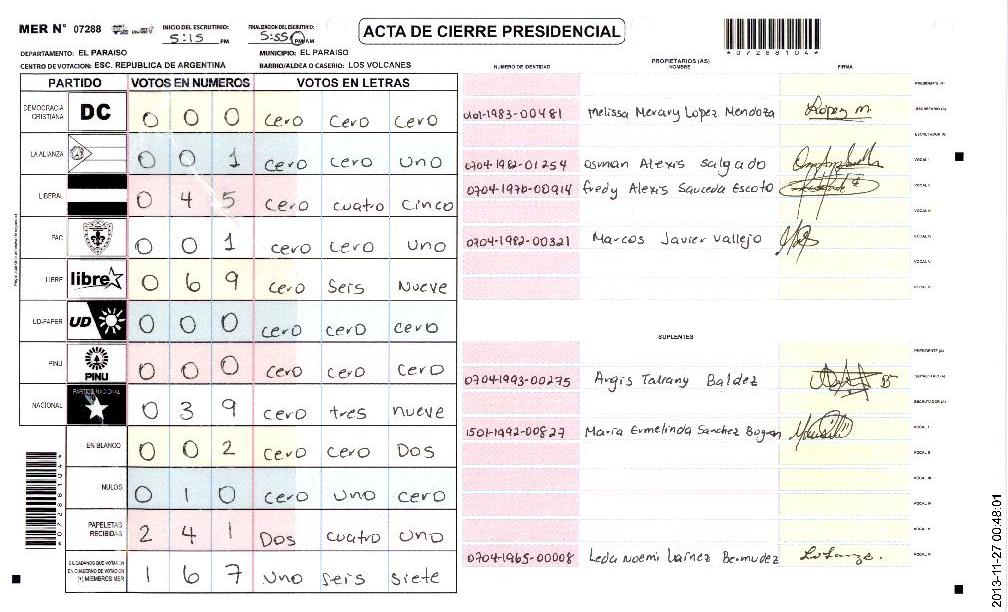 MER N° 07288
INICIO DEL ESCRUTINIO: 5:15 PM
FINALIZACION DEL ESCRUTINIO: 5:55 PM AM
ACTA DE CIERRE PRESIDENCIAL
*07288104*
DEPARTAMENTO: EL PARAISO MUNICIPIO: EL PARAISO
CENTRO DE VOTACION: ESC. REPUBLICA DE ARGENTINA BARRIO/ALDEA O CASERIO: LOS VOLCANES
PARTIDO VOTOS EN NUMEROS VOTOS EN LETRAS
DEMOCRACIA CRISTIANA DC 0 0 0 cero cero cero
LA ALIANZA 0 0 1 cero cero uno
LIBERAL 0 4 5 cero cuatro cinco
PAC 0 0 1 cero cero uno
LIBRE libre 0 6 9 cero seis nueve
UD-FAPER UD 0 0 0 cero cero cero
PINU PINU 0 0 0 cero cero cero
NACIONAL PARTIDO NACIONAL 0 3 9 cero tres nueve
EN BLANCO 0 0 2 cero cero Dos
NULOS 0 1 0 cero uno cero
PAPELETAS RECIBIDAS 2 4 1 Dos cuatro uno
CIUDADANOS QUE VOTARON EN CUADERNO DE VOTACION (+) MIEMBROS MER 1 6 7 uno seis siete
*07288104*
PROPIETARIOS (AS)
NUMERO DE IDENTIDAD NOMBRE FIRMA
PRESIDENTE (A)
0101-1983-00481 Melissa Mercury Lopez Mendoza Lopez m. SECRETARIO (A)
ESCRUTADOR (A)
0704-1982-01254 osman Alexis salgado VOCAL I
0704-1970-00914 fredy Alexis Sauceda Escoto VOCAL II
VOCAL III
0704-1982-00321 Marcos Javier vallejo VOCAL IV
VOCAL V
VOCAL VI
SUPLENTES
PRESIDENTE (A)
0704-1993-00275 Argis Baldez SECRETARIO (A)
ESCRUTADOR (A)
1501-1992-00827 Maria Ermelinda Sanchez VOCAL I
VOCAL II
VOCAL III
VOCAL IV
VOCAL V
0704-1965-00008 Leda Noemi Lainez Bermudez VOCAL VI
2013-11-27 00:48:01